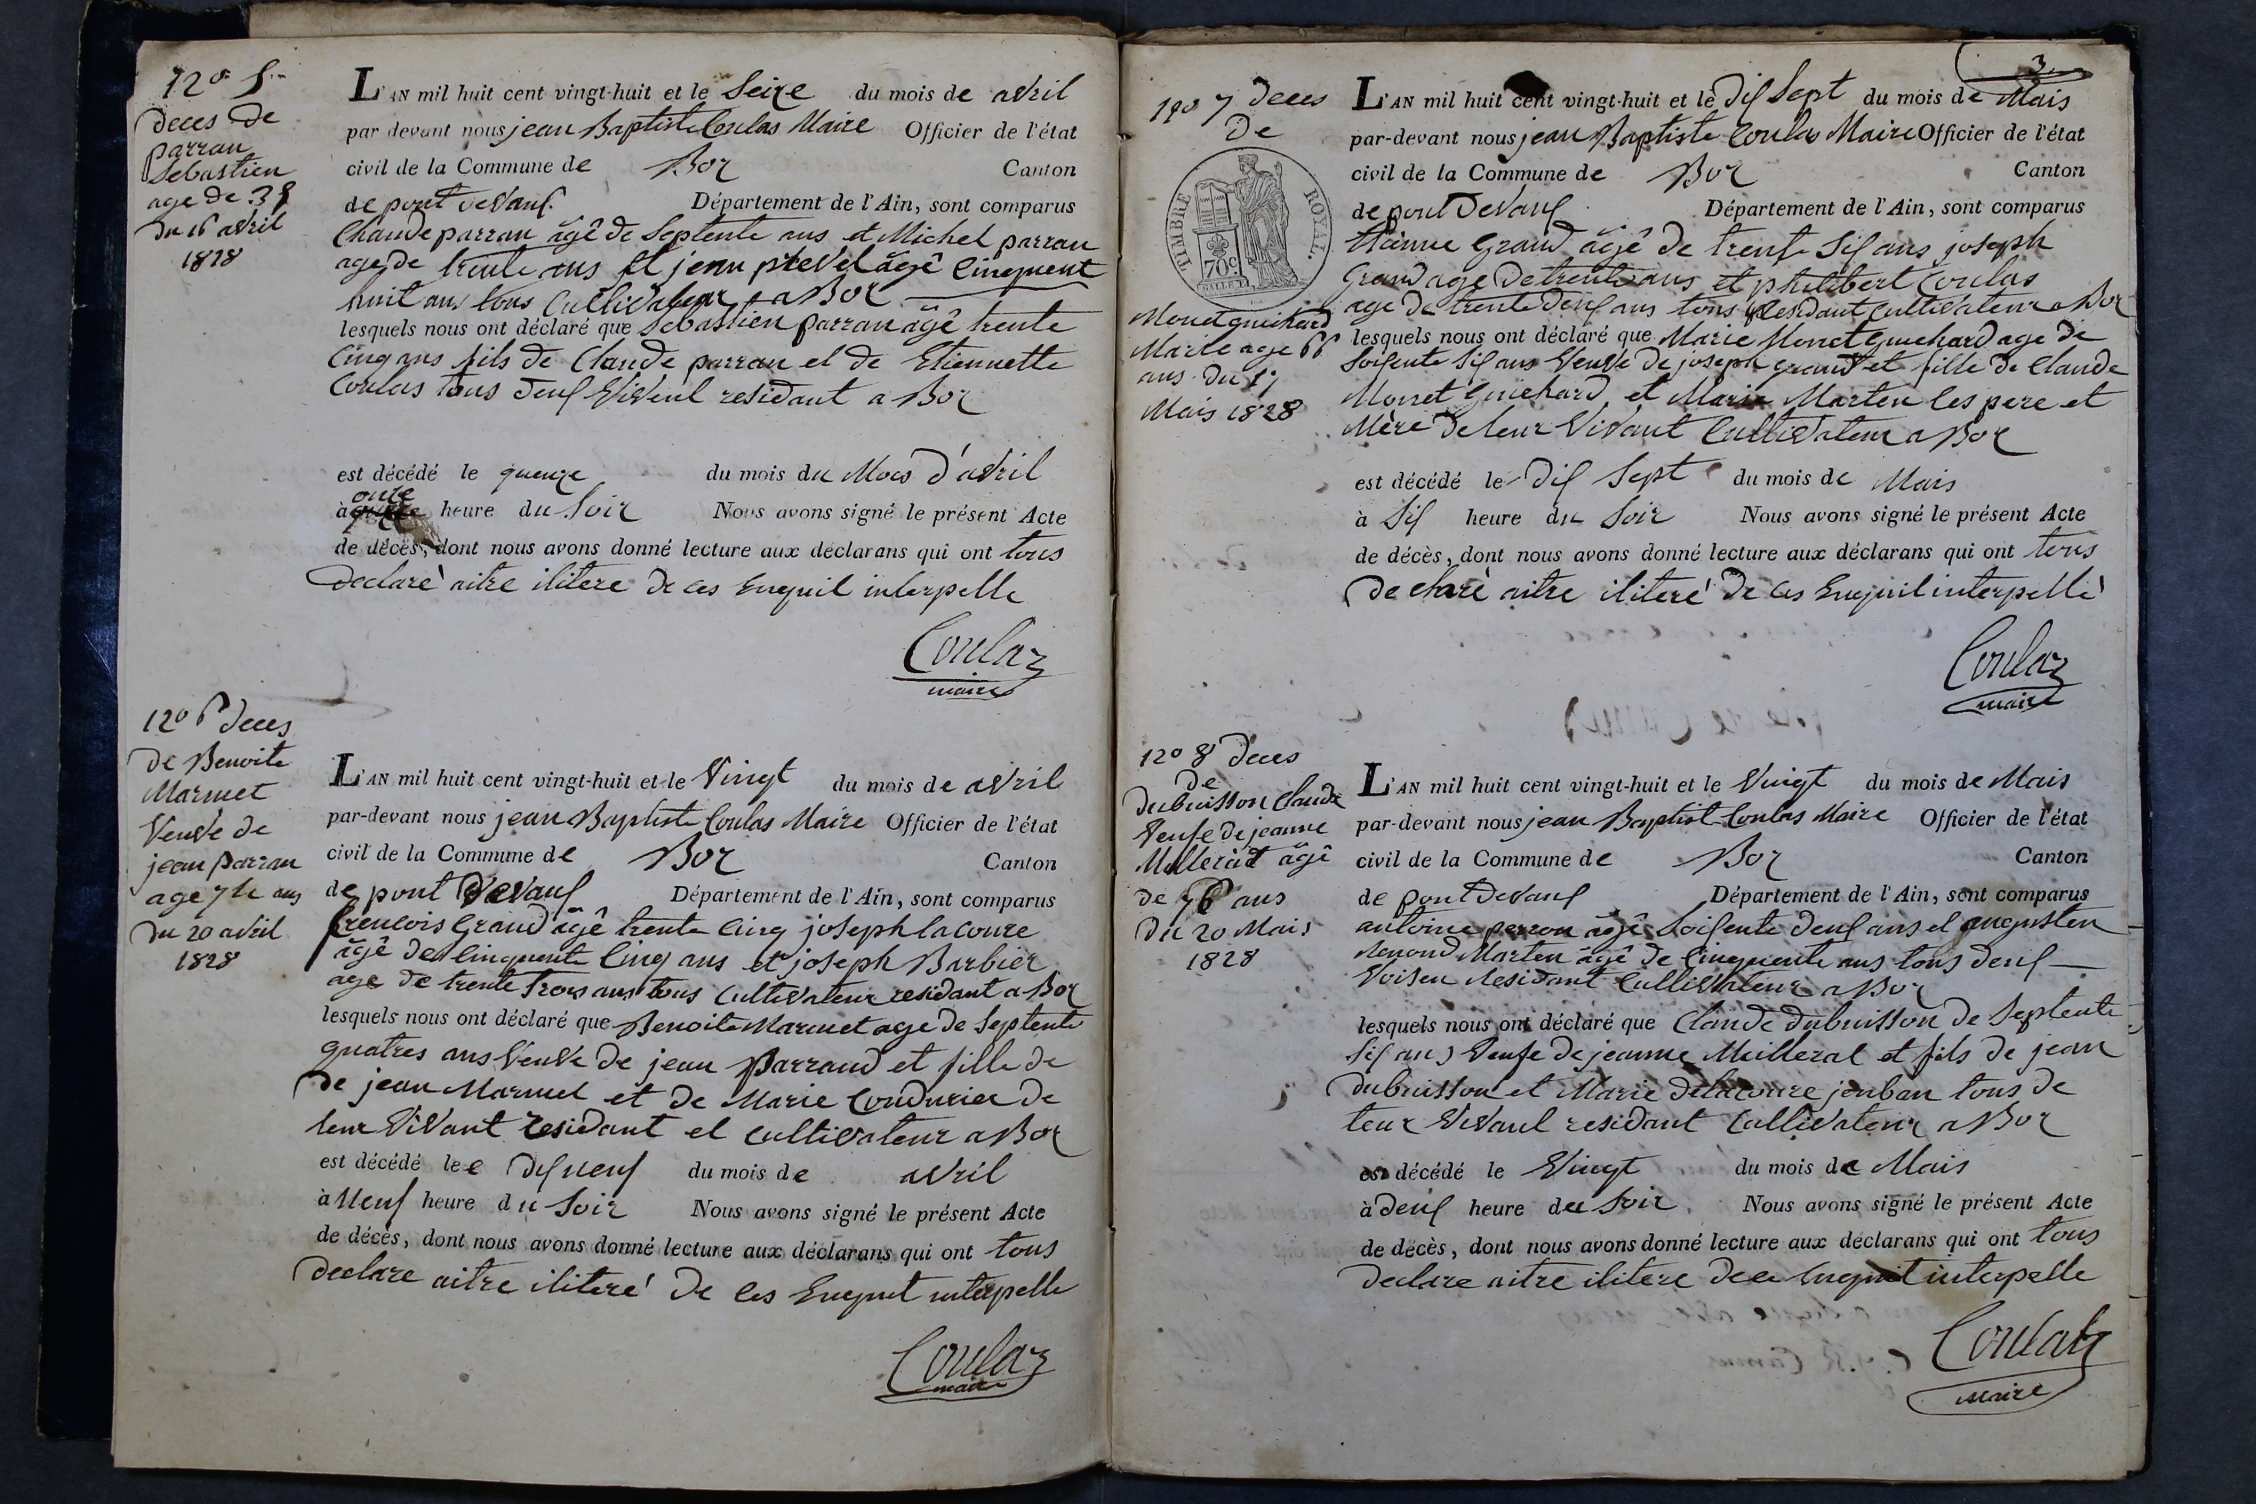 12º 5
deces de
parran
Sebastien
age de 38
du 16 avril
1828
L'AN mil huit cent vingt-huit et le Seize du mois de avril
par devant nous jean Baptiste Coulas Maire Officier de l'état
civil de la Commune de Boz Canton
de pont devaux Département de l'Ain, sont comparus
Claude parran âgê de Septente ans et Michel parran
age de trente ans et jean prevel âgê Cinquent
huit ans tous Cultivateur a Boz
lesquels nous ont déclaré que Sebastien parran âgê trente
Cinq ans fils de Claude parran et de Etiennette
Coulas tous deux vivent residant a Boz
est décédé le queinze du mois du Mois d'avril
à onze heure du Soir Nous avons signé le présent Acte
de décès, dont nous avons donné lecture aux déclarans qui ont tous
declarè aitre ilitere de ces Enquil interpelle
Coulaz
maire
12º 6 deces
de Benoite
Marmet
Veuve de
jean parran
age 74 ans
du 20 avril
1828
L'AN mil huit cent vingt-huit et le Vingt du mois de avril
par-devant nous jean Baptiste Coulas Maire Officier de l'état
civil de la Commune de Boz Canton
de pont devaux Département de l'Ain, sont comparus
frencois Grand âgê trente Cinq joseph lacoure
âgê de Cinquente Cinq ans et joseph Barbier
age de trente trois ans tous Cultivateur residant a Boz
lesquels nous ont déclaré que Benoite Marmet age de Septente
quatres ans Veuve de jean Parraud et fille de
de jean Marmet et de Marie Condurier de
leur Vivant residant et cultivateur a Boz
est décédé lee dix neuf du mois de avril
à Neuf heure du Soir Nous avons signé le présent Acte
de décès, dont nous avons donné lecture aux déclarans qui ont tous
declare aitre ilitere de ces Enquit interpelle
Coulaz
maire
3
12º 7 deces
De
TIMBRE ROYAL
70c
Monet guichard
Marie age 66
ans du 17
Mais 1828
L'AN mil huit cent vingt-huit et le dix Sept du mois de Mais
par-devant nous jean Baptiste Coulas Maire Officier de l'état
civil de la Commune de Boz Canton
de pont devaux Département de l'Ain, sont comparus
Etienne Grand âgê de trente Six ans joseph
Grand age de trente ans et philibert Coulas
age de trente deux ans tous residant Cultivateur a Boz
lesquels nous ont déclaré que Marie Monet Guichard age de
Soixente Six ans Veuve de joseph grand et fille de Claude
Monet Guichard et Marie Marten les pere et
Mère de leur Vivant Cultivateur a Boz
est décédé le dix Sept du mois de Mais
à Six heure du Soir Nous avons signé le présent Acte
de décès, dont nous avons donné lecture aux déclarans qui ont tous
declarè aitre ilitere de ces Enquil interpellè
Coulaz
maire
12º 8 deces
de
dubuisson Claude
Veufe de jeanne
Mullerat âgê
de 76 ans
du 20 Mais
1828
L'AN mil huit cent vingt-huit et le Vingt du mois de Mais
par-devant nous jean Baptist Coulas Maire Officier de l'état
civil de la Commune de Boz Canton
de pont devaux Département de l'Ain, sont comparus
antoine perron âgê Soixente deux ans et augusten
Renond Marten âgê de Cinquente ans tous deux
Voisen Residant Cultivateur a Boz
lesquels nous ont déclaré que Claude dubuisson de Septente
Six ans Veufe de jeanne Mullerat et fils de jean
dubuisson et Marie delacoure jouban tous de
leur Vivant residant Cultivateur a Boz
est décédé le Vingt du mois de Mais
à deux heure du Soir. Nous avons signé le présent Acte
de décès, dont nous avons donné lecture aux déclarans qui ont tous
declare aitre ilitere de ce Enquit interpelle
Coulaz
Maire